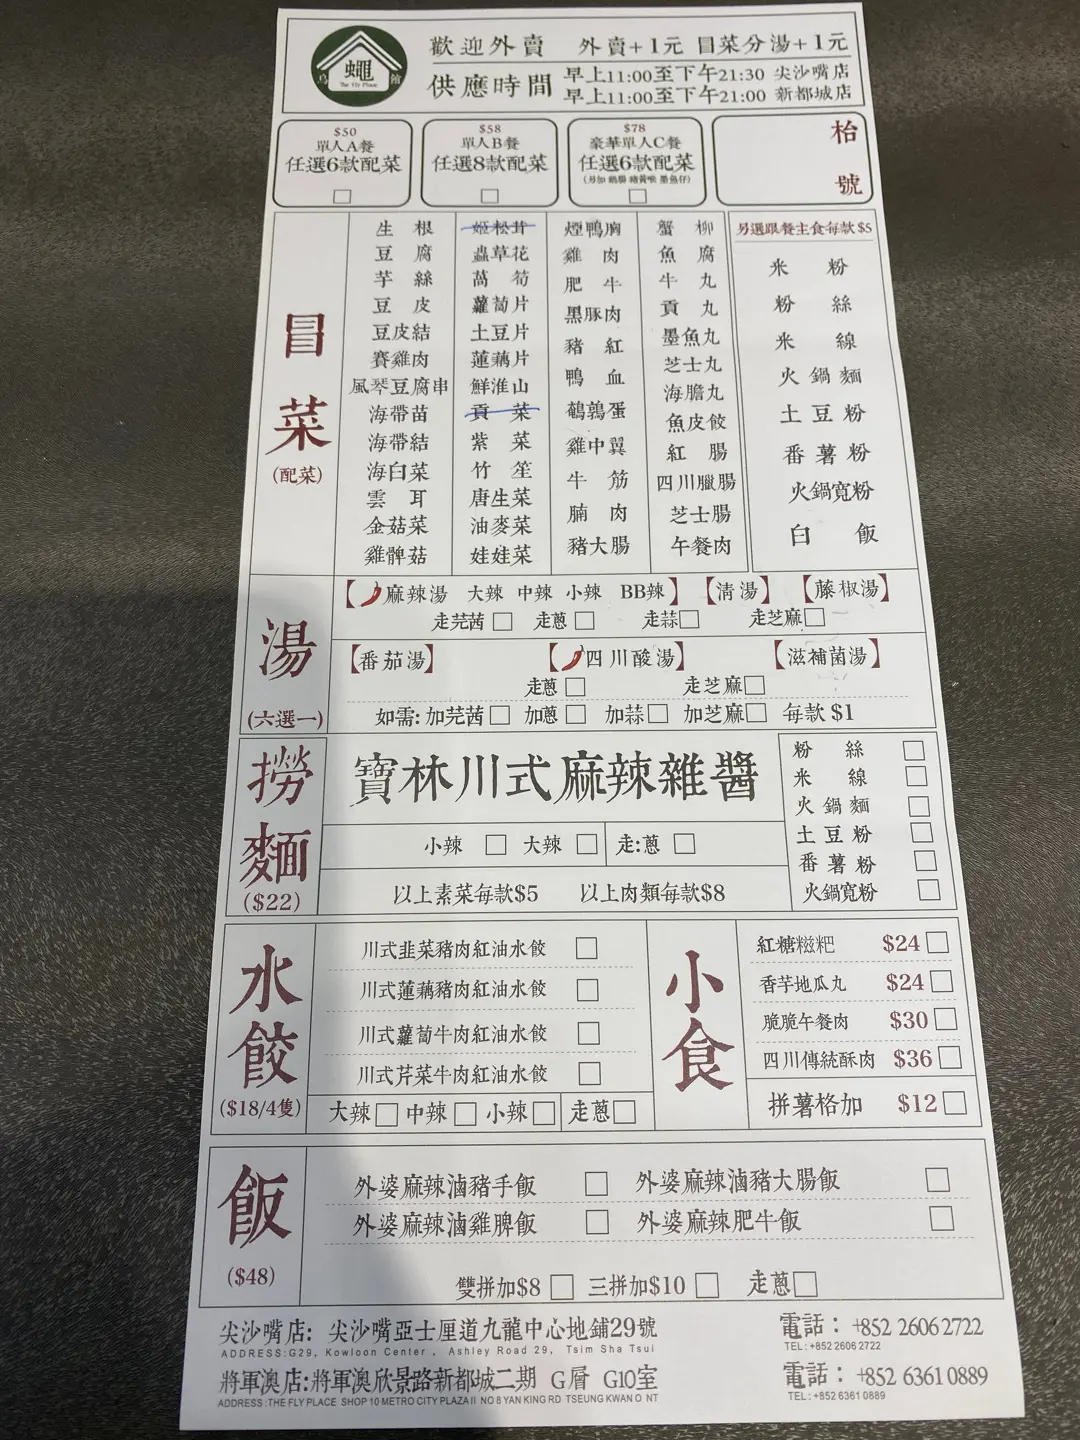 蠅
The Fly Place
歡迎外賣 外賣+1元 冒菜分湯+1元
供應時間
早上11:00至下午21:30 尖沙嘴店
早上11:00至下午21:00 新都城店
$50
單人A餐
任選6款配菜
$58
單人B餐
任選8款配菜
$78
豪華單人C餐
任選6款配菜
枱號
冒菜
(配菜)
生根
豆腐
芋絲
豆皮
豆皮結
賽雞肉
風琴豆腐串
海帶苗
海帶結
海白菜
雲耳
金菇菜
雞髀菇
姬松茸
蟲草花
萵筍
蘿蔔片
土豆片
蓮藕片
鮮淮山
貢菜
紫菜
竹笙
唐生菜
油麥菜
娃娃菜
煙鴨胸
雞肉
肥牛
黑豚肉
豬紅
鴨血
鵪鶉蛋
雞中翼
牛筋
腩肉
豬大腸
蟹柳
魚腐
牛丸
貢丸
墨魚丸
芝士丸
海膽丸
魚皮餃
紅腸
四川臘腸
芝士腸
午餐肉
另選跟餐主食每款$5
米粉
粉絲
米線
火鍋麵
土豆粉
番薯粉
火鍋寬粉
白飯
湯
(六選一)
【麻辣湯 大辣 中辣 小辣 BB辣】 【清湯】 【藤椒湯】
走芫茜 走蔥 走蒜 走芝麻
【番茄湯】 【四川酸湯】 【滋補菌湯】
走蔥 走芝麻
如需: 加芫茜 加蔥 加蒜 加芝麻 每款 $1
撈麵
($22)
寶林川式麻辣雜醬
小辣 大辣 走:蔥
以上素菜每款$5 以上肉類每款$8
粉絲
米線
火鍋麵
土豆粉
番薯粉
火鍋寬粉
水餃
($18/4隻)
川式韭菜豬肉紅油水餃
川式蓮藕豬肉紅油水餃
川式蘿蔔牛肉紅油水餃
川式芹菜牛肉紅油水餃
大辣 中辣 小辣 走蔥
小食
紅糖糍粑 $24
香芋地瓜丸 $24
脆脆午餐肉 $30
四川傳統酥肉 $36
拼薯格加 $12
飯
($48)
外婆麻辣滷豬手飯 外婆麻辣滷豬大腸飯
外婆麻辣滷雞脾飯 外婆麻辣肥牛飯
雙拼加$8 三拼加$10 走蔥
尖沙嘴店: 尖沙嘴亞士厘道九龍中心地鋪29號 電話：+852 2606 2722
ADDRESS:G29, Kowloon Center , Ashley Road 29, Tsim Sha Tsui TEL:+852 2606 2722
將軍澳店:將軍澳欣景路新都城二期 G層 G10室 電話：+852 6361 0889
ADDRESS :THE FLY PLACE SHOP 10 METRO CITY PLAZA II NO 8 YAN KING RD TSEUNG KWAN O NT TEL:+852 6361 0889